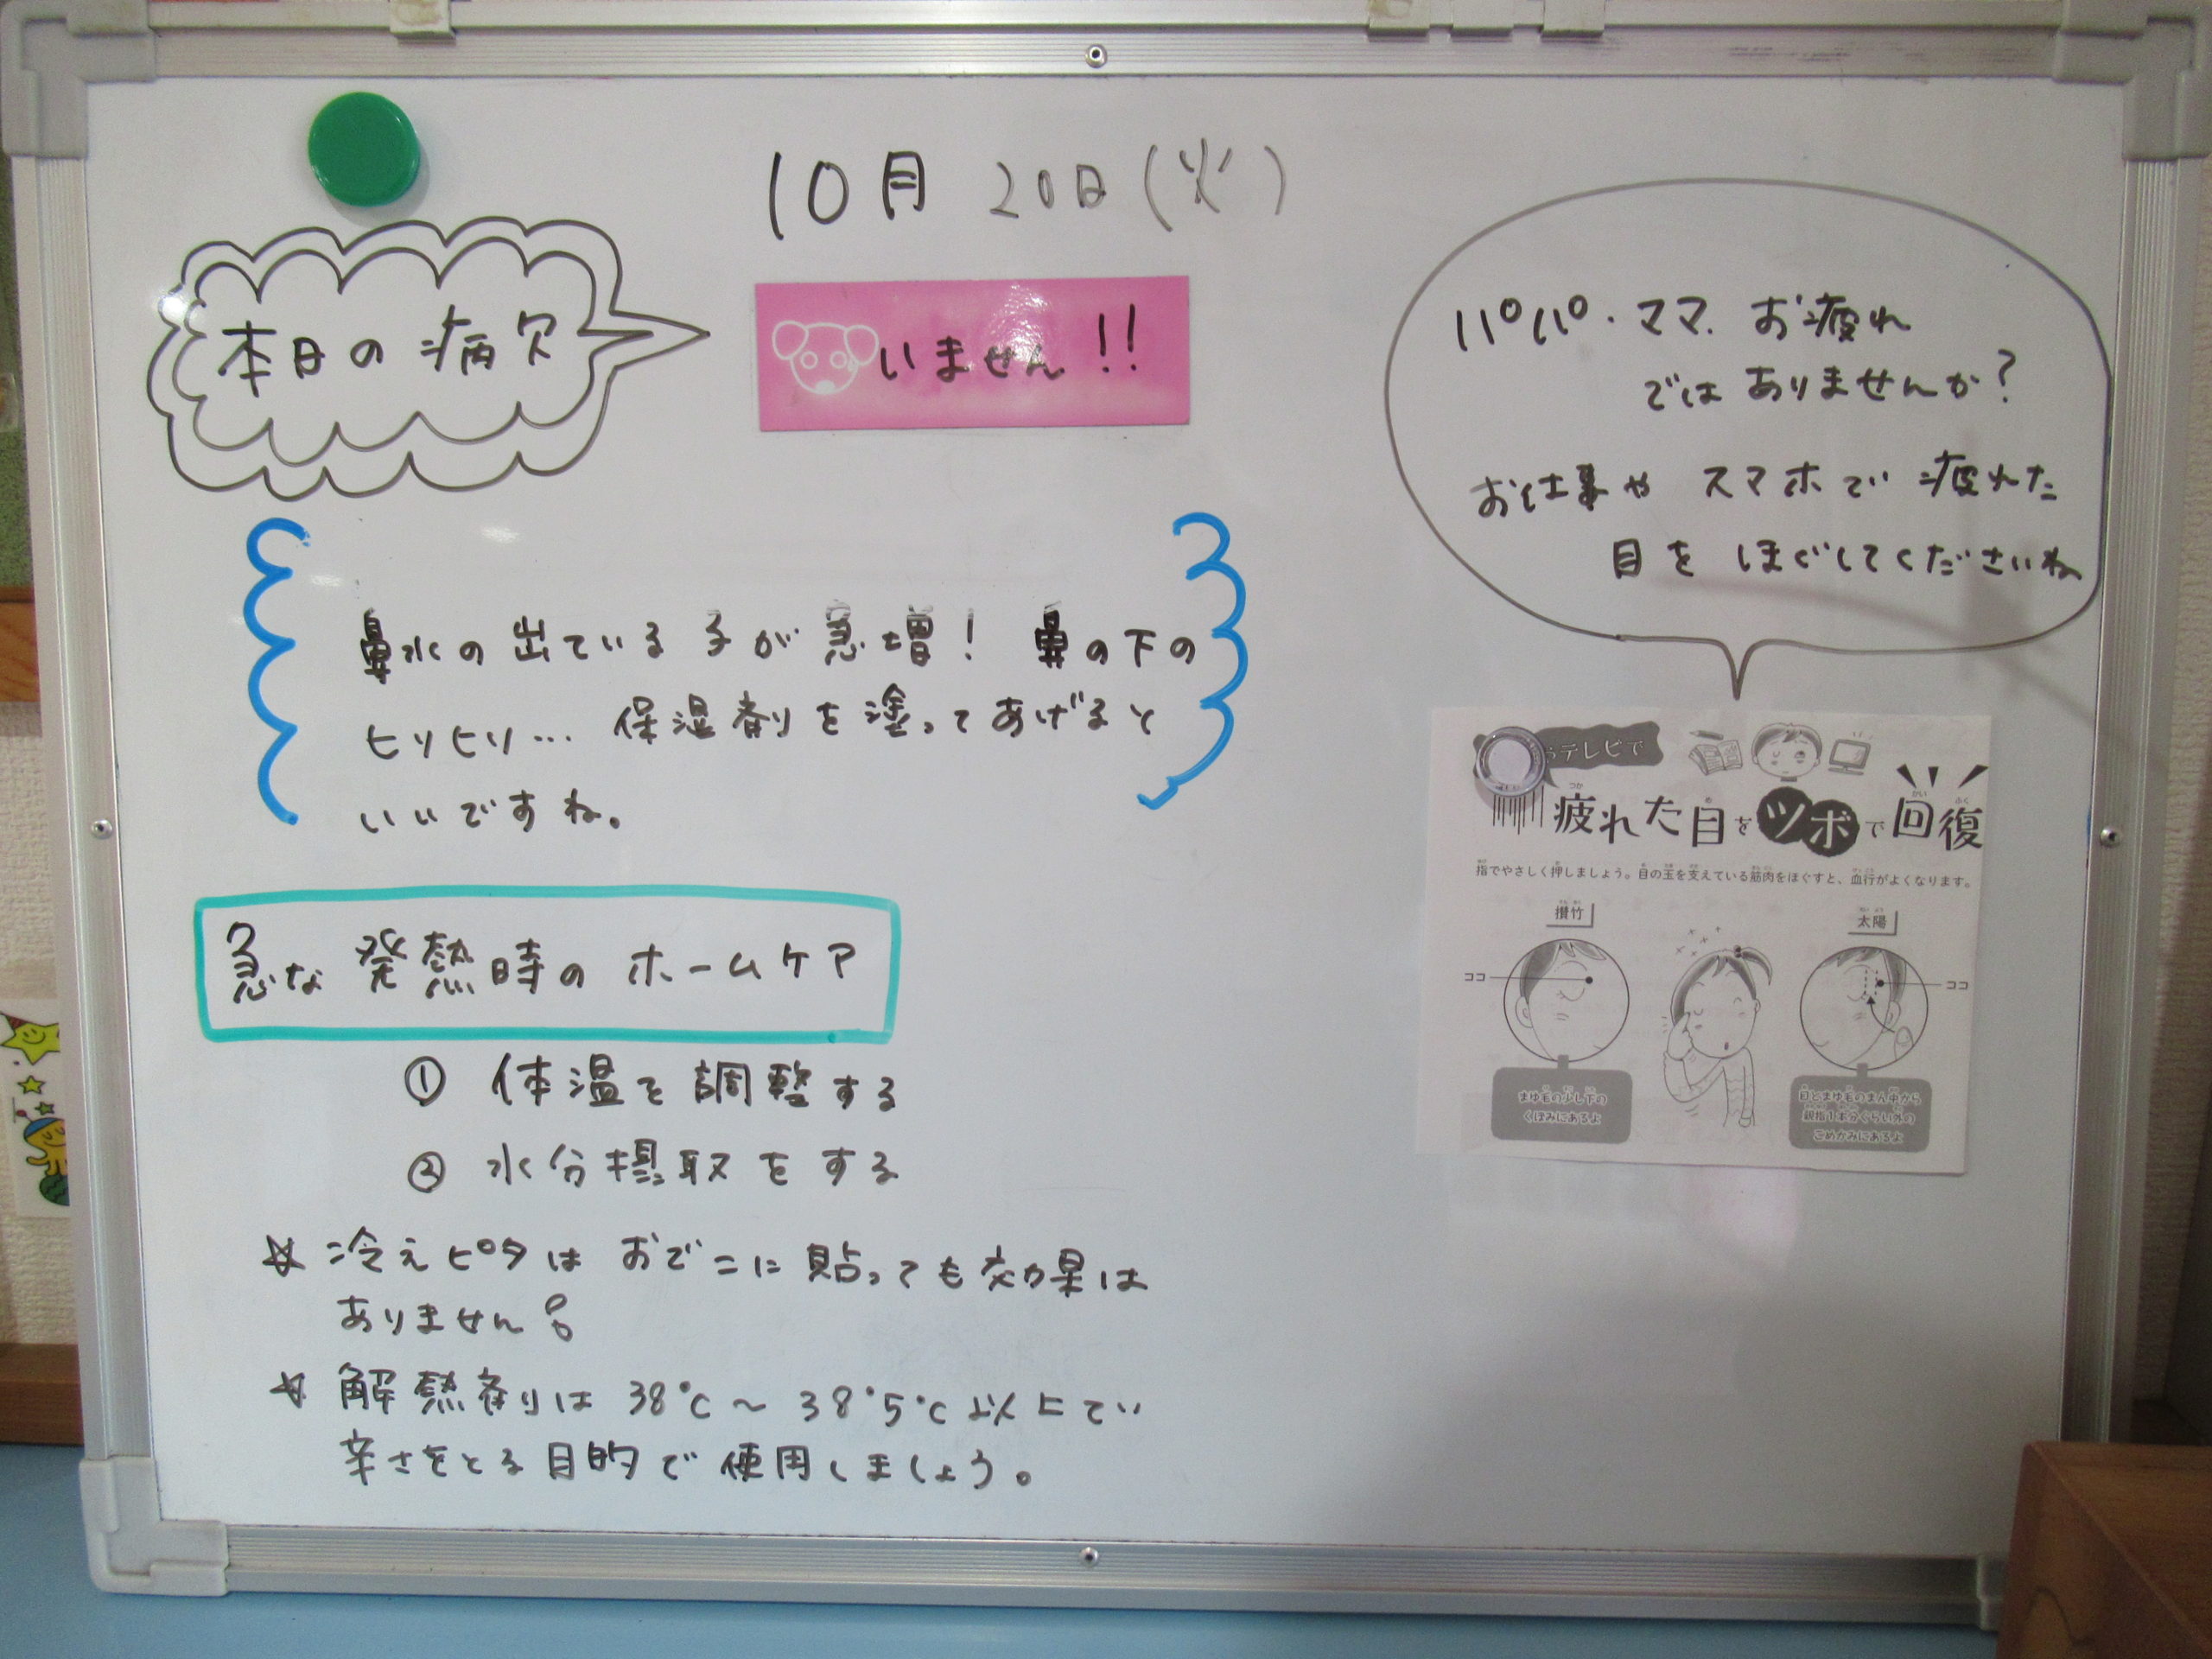 10月 20日(火)
本日の病欠
いません!!
鼻水の出ている子が急増! 鼻の下の
ヒリヒリ… 保湿剤を塗ってあげると
いいですね。
急な 発熱時の ホームケア
① 体温を調整する
② 水分摂取をする
☆ 冷えピタは おでこに貼っても効果は
ありません!
☆ 解熱剤は 38℃〜38°5℃以上で
辛さをとる目的で使用しましょう。
パパ・ママ お疲れ
ではありませんか?
お仕事や スマホで 疲れた
目を ほぐしてくださいね
テレビで
疲れた目をツボで回復
指でやさしく押しましょう。目の玉を支えている筋肉をほぐすと、血行がよくなります。
攅竹
ココ
まゆ毛の少し下の
くぼみにあるよ
太陽
ココ
目とまゆ毛のまん中から
親指1本分ぐらい外の
こめかみにあるよ